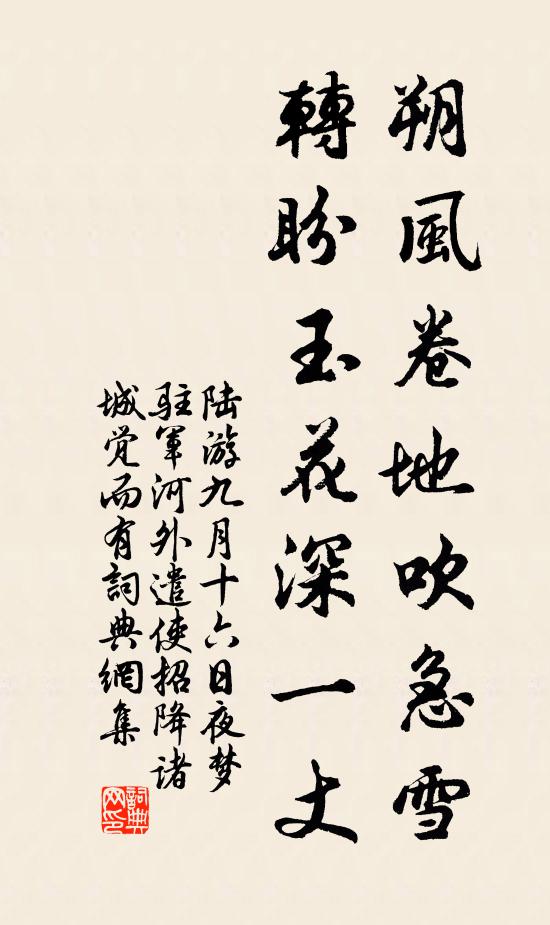 朔風卷地吹急雪
轉盼玉花深一丈
陆游九月十六日夜梦
駐軍河外遣使招降诸
城觉而有詞典網集
詞典
网印